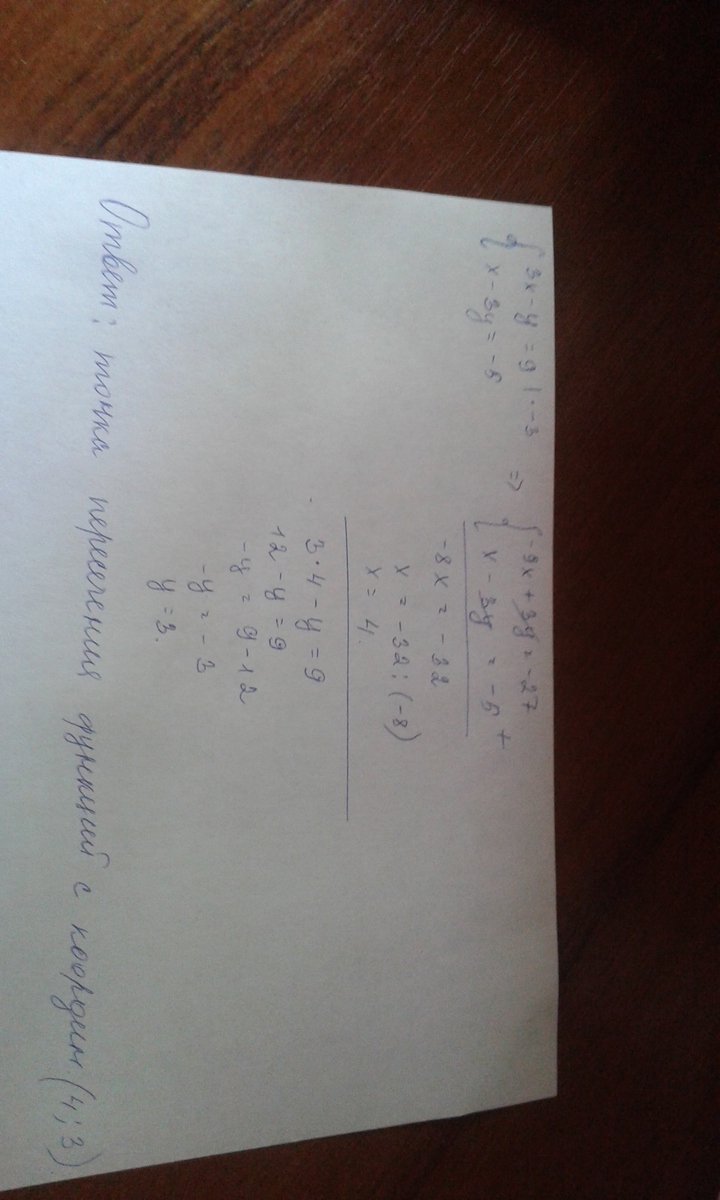 { 3x - y = 9 | · -3 ⇒ { -9x + 3y = -27
{ x - 3y = -5 { x - 3y = -5 +
-8x = -32
x = -32 : (-8)
x = 4.
3·4 - y = 9
12 - y = 9
-y = 9 - 12
-y = -3
y = 3.
Ответ: точка пересечения функций с координ. (4; 3)